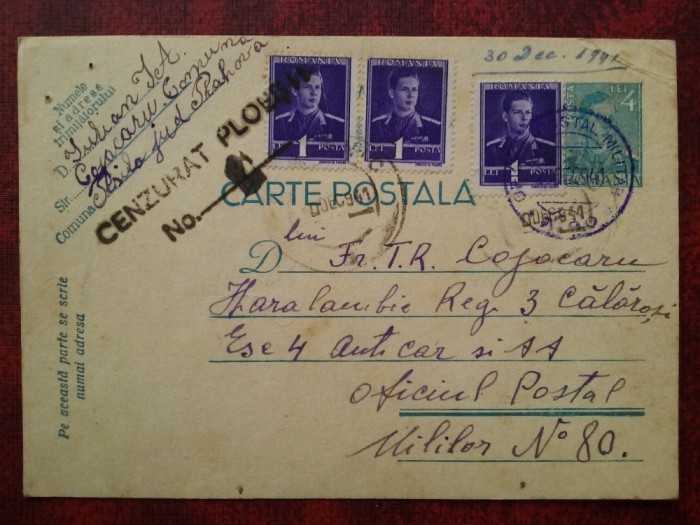 30 Dec. 1941
ROMANIA
1
LEI POSTA
ROMANIA
1
LEI POSTA
ROMANIA
1
LEI POSTA
LEI
4
Numele
și adresa
trimițătorului
D. Iulian I.A.
Str. Cojocaru Comuna
Comuna jud Prahova
CENZURAT PLOEȘTI
No.
DEC 941
POSTAL
DEC 941
CARTE POSTALA
lui
D Fr. T.R. Cojocaru
Haralambie Reg. 3 Călărași
Esc 4 Anticar si AA
Oficiul Postal
Mililor No 80.
Pe această parte se scrie
numai adresa